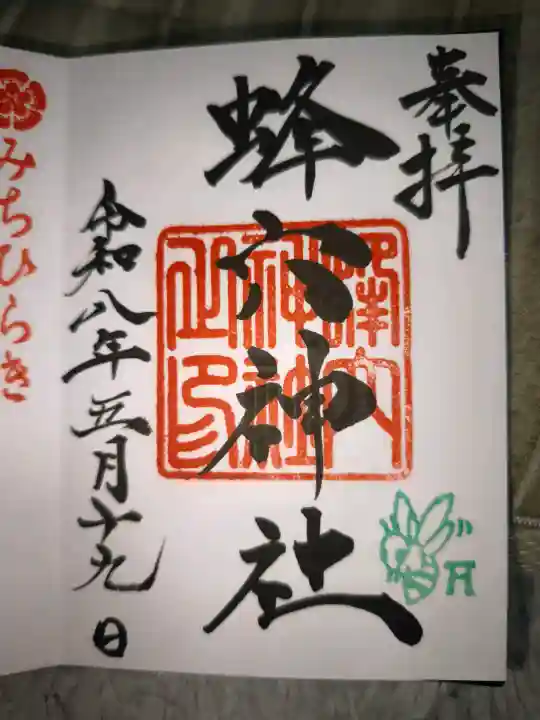 奉拝
蜂穴神社
蜂穴神社之印
令和八年五月十九日
みちひらき